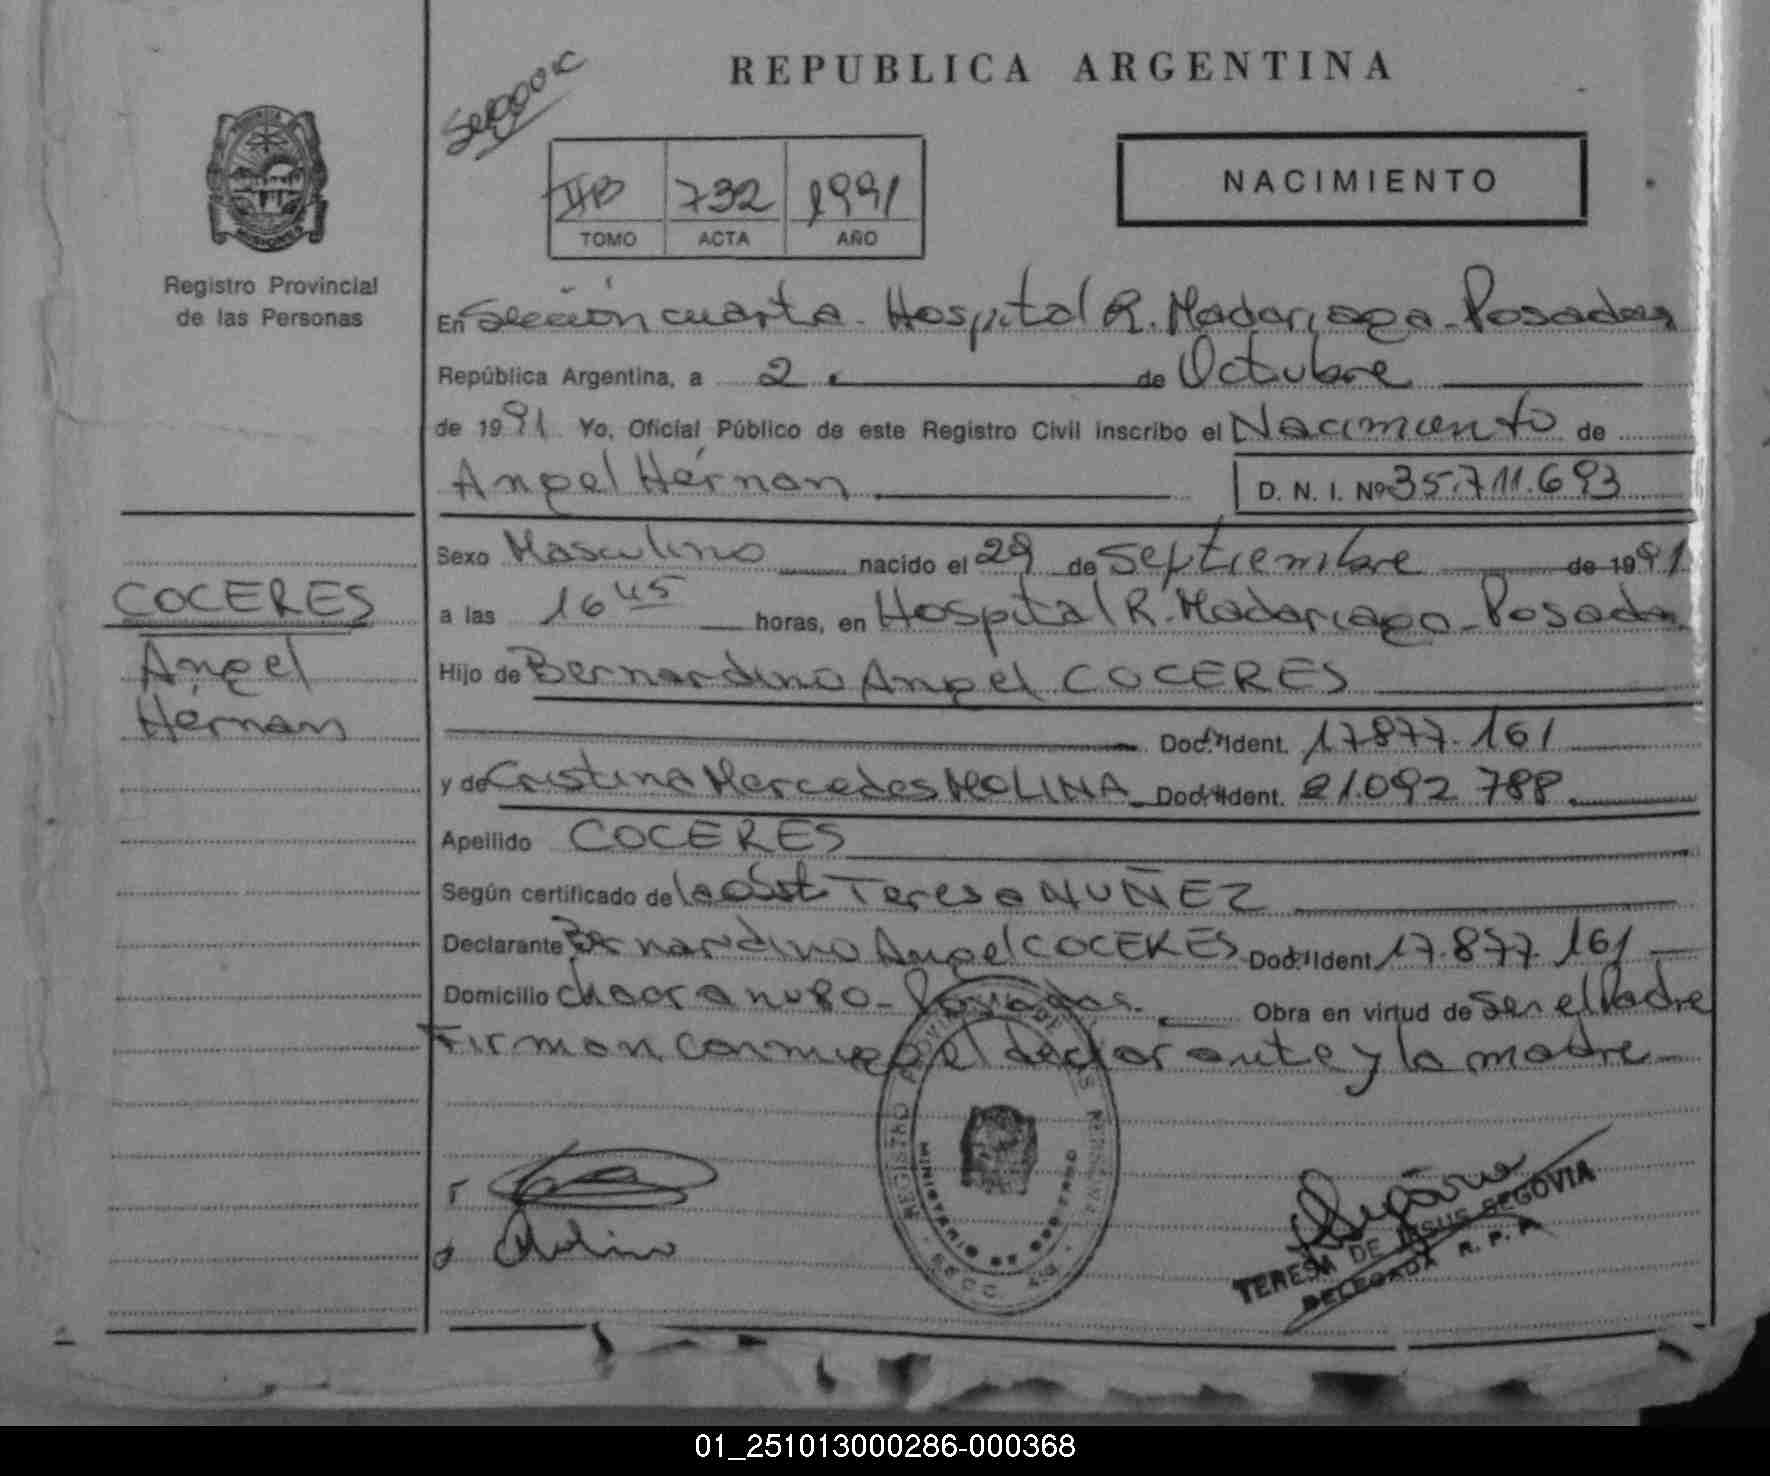 REPUBLICA ARGENTINA
NACIMIENTO
IIB 732 1991
TOMO ACTA AÑO
MISIONES
Registro Provincial
de las Personas
En Sección cuarta - Hospital R. Madariaga - Posadas
República Argentina, a 2 de Octubre
de 1991 Yo, Oficial Público de este Registro Civil inscribo el Nacimiento de
Angel Hérnan D. N. I. Nº 35.711.693
Sexo Masculino nacido el 29 de Septiembre de 1991
a las 16 45 horas, en Hospital R. Madariaga - Posadas
Hijo de Bernardino Angel COCERES
Doc. Ident. 17.877.161
y de Cristina Mercedes MOLINA Doc. Ident. 21.092 788
Apellido COCERES
Según certificado de la obst Teresa NUÑEZ
Declarante Bernardino Angel COCERES Doc. Ident 17.877.161
Domicilio chacra nº 80 - Posadas. Obra en virtud de ser el Padre
Firman conmigo el declarante y la madre
COCERES
Angel
Hérnan
REGISTRO PROVINCIAL DE LAS PERSONAS
MINISTERIO DE GOBIERNO
SECC. 4ta
TERESA DE JESUS SEGOVIA
DELEGADA R. P. P.
01_251013000286-000368